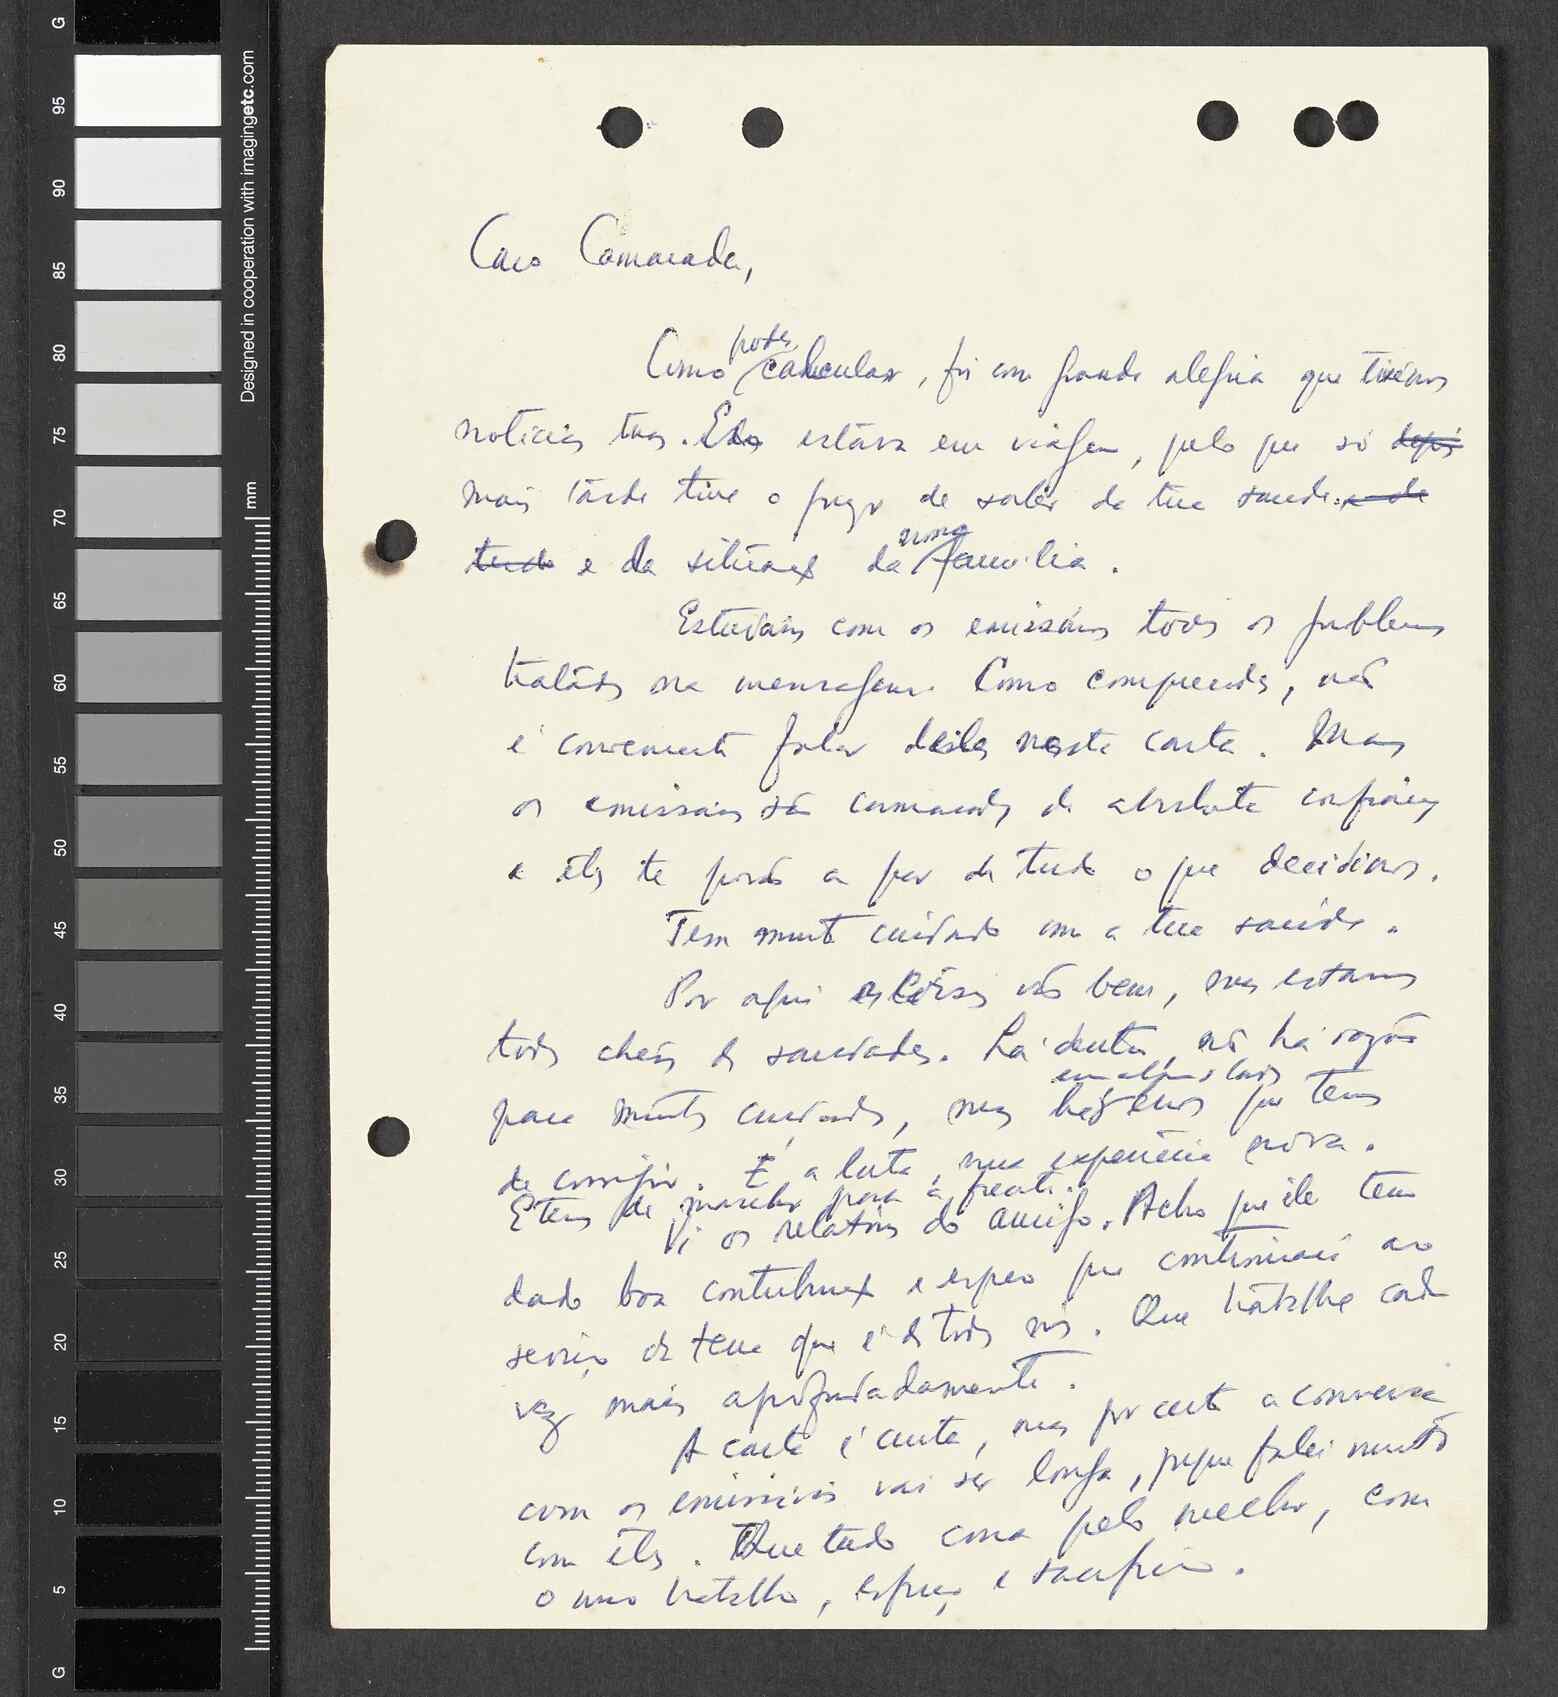 G
95
90
85
80
75
70
65
60
55
50
45
40
35
30
25
20
15
10
5
G
Designed in cooperation with imagingetc.com
mm
Caro Camarada,
podes
Como calcular, foi com grande alegria que tivémos
notícias tuas. Eu estava em viagem, pelo que só depois
mais tarde tive o prazo de saber da tua saude e de
tudo e da situação da família.
nossa
Estudámos com os emissários todos os problemas
tratados na mensagem. Como compreendes, não
é conveniente falar deles nesta carta. Mas
os emissários são camaradas de absoluta confiança
e êles te porão a par de tudo o que decidimos.
Tem muito cuidado com a tua saúde.
Por aqui as coisas vão bem, mas estamos
todos cheios de saudades. Lá dentro, não há razão
em alguns lados
para muitos cuidados, mas há erros que temos
de corrigir. É a luta, numa experiência nova.
E temos de marchar para a frente.
Vi os relatórios do amigo. Acho que êle tem
dado boa contribuição e espero que continuará ao
serviço da terra que é de todos nós. Que trabalhe cada
vez mais aprofundadamente.
A carta é curta, mas por certo a conversa
com os emissários vai ser longa, porque falei muito
com êles. Que tudo corra pelo melhor, com
o nosso trabalho, esforço e sacrifício.